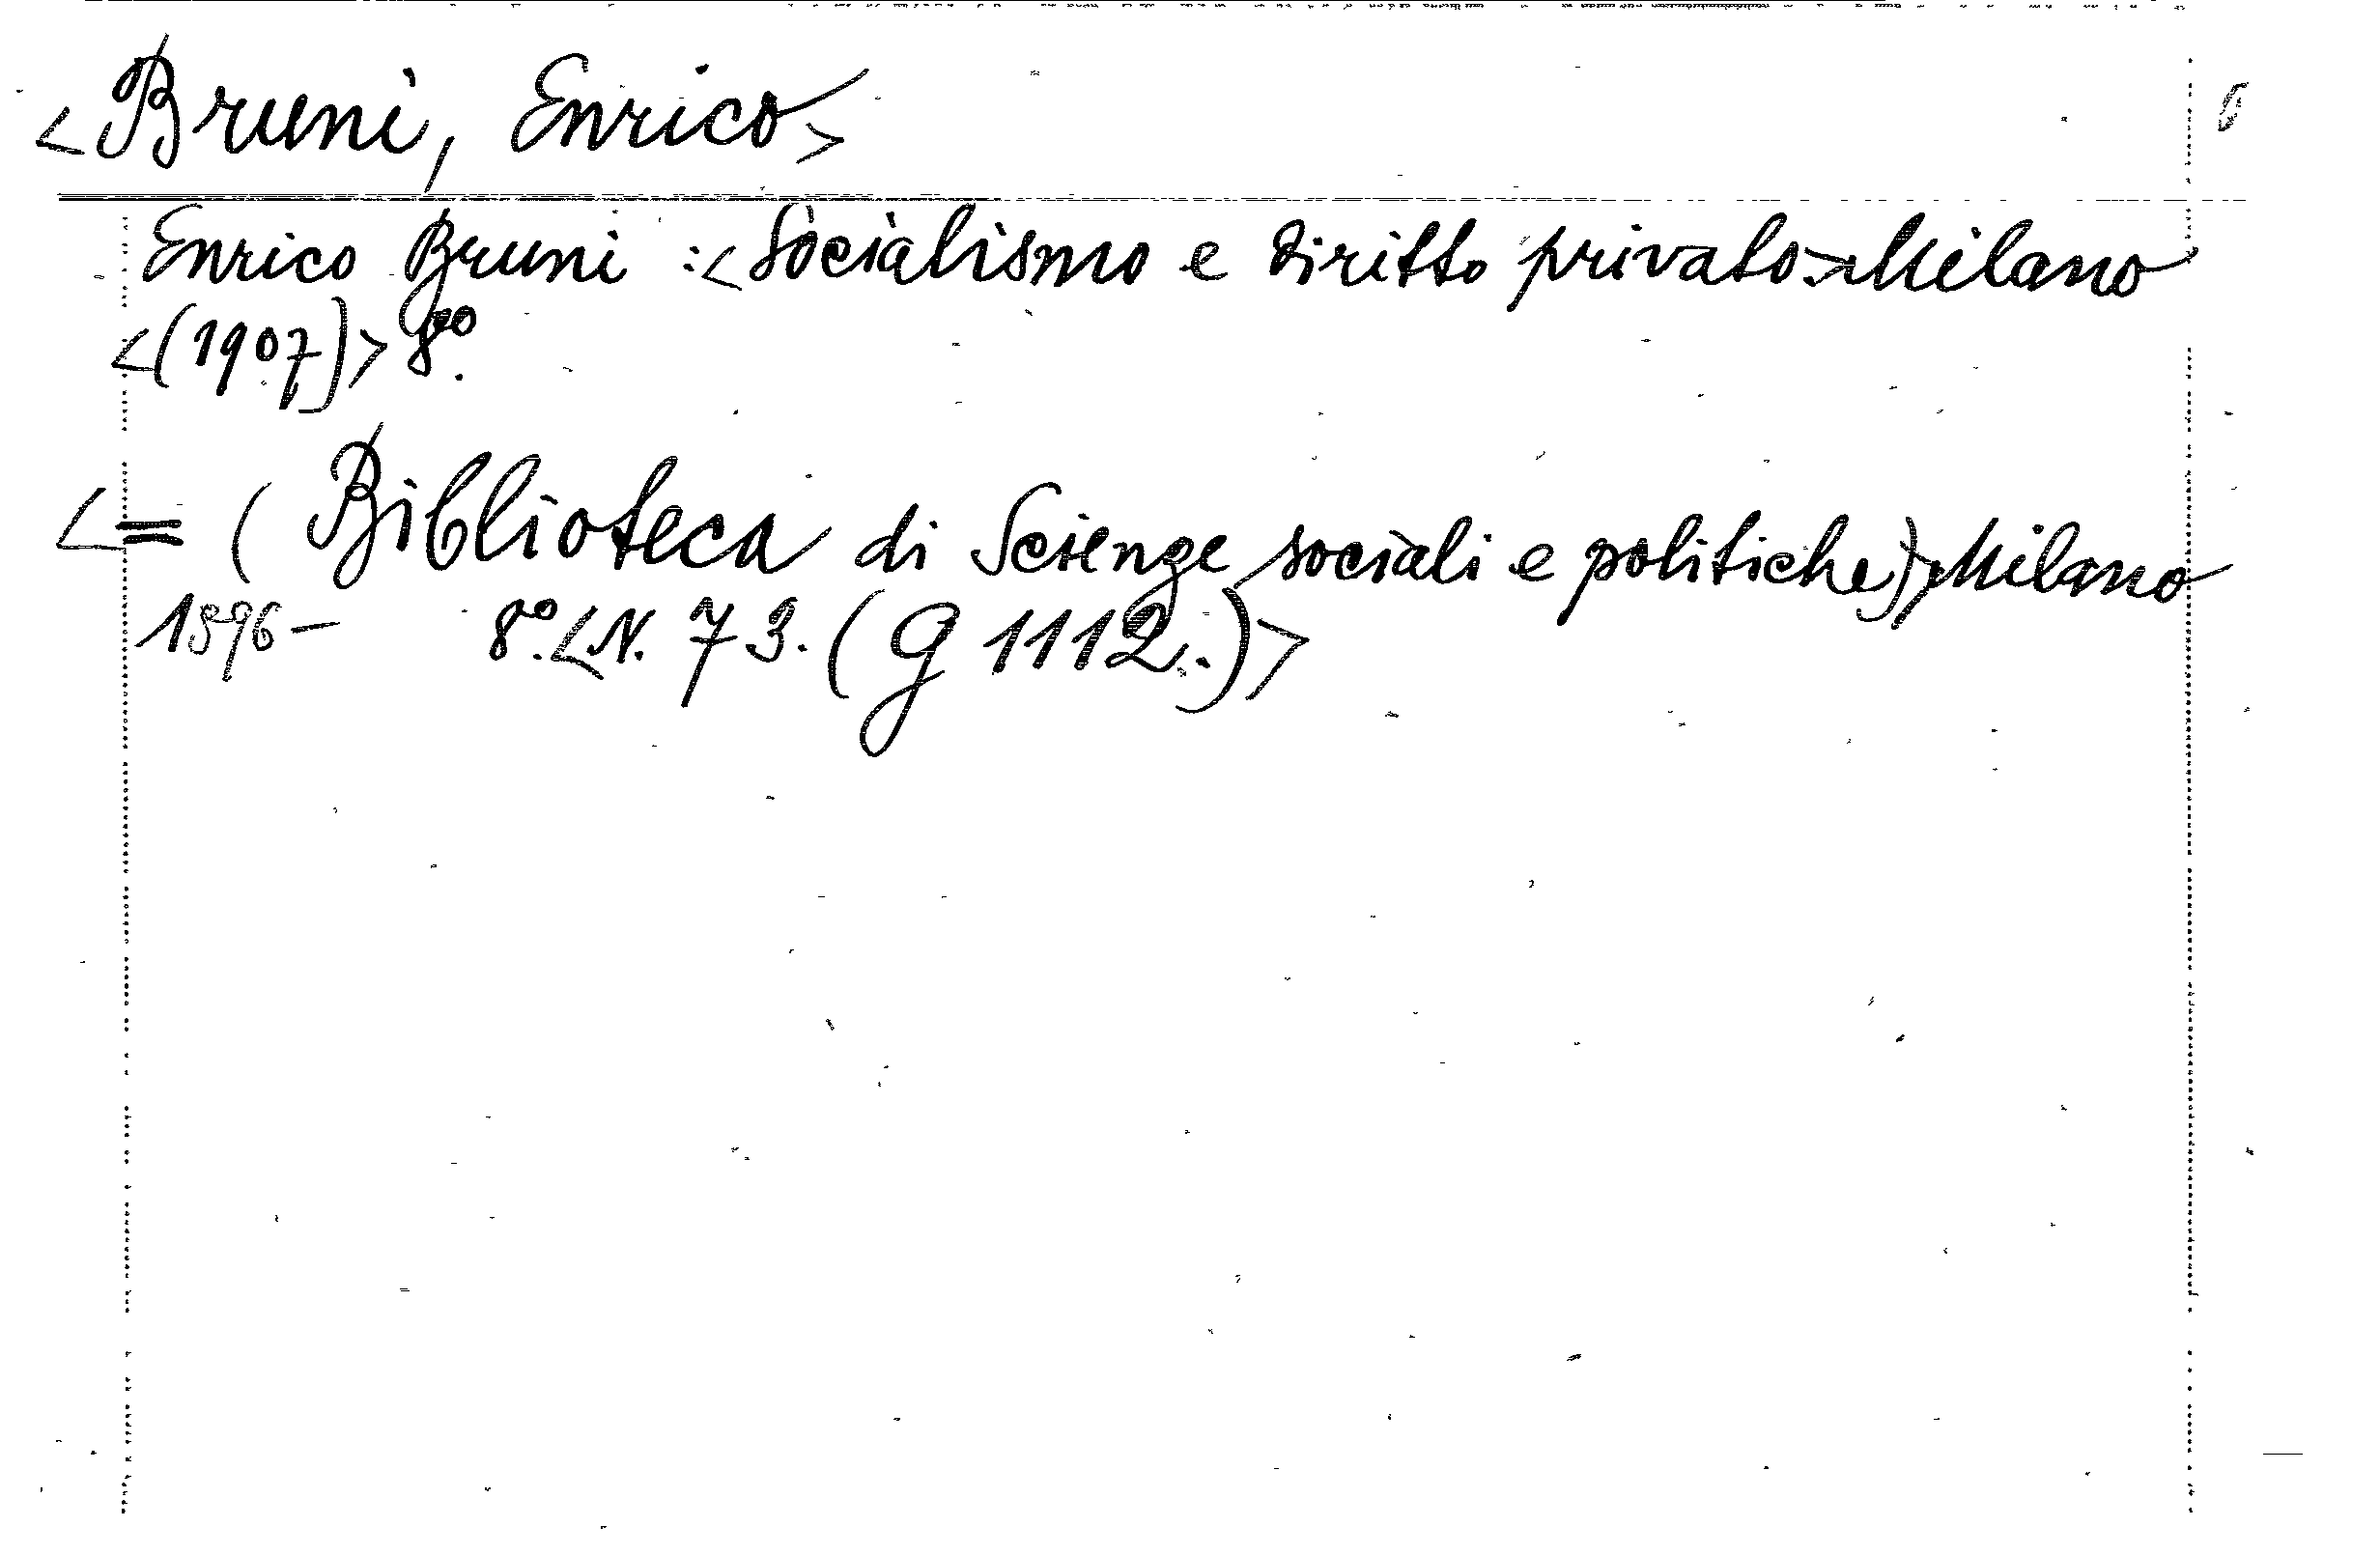 <Bruni, Enrico>
Enrico Bruni :<Socialismo e diritto privato.>Milano
<(1907)> 8º.
<= (Biblioteca di Scienze sociali e politiche)>Milano
1896– 8º.<N. 73. (G 1112.)>